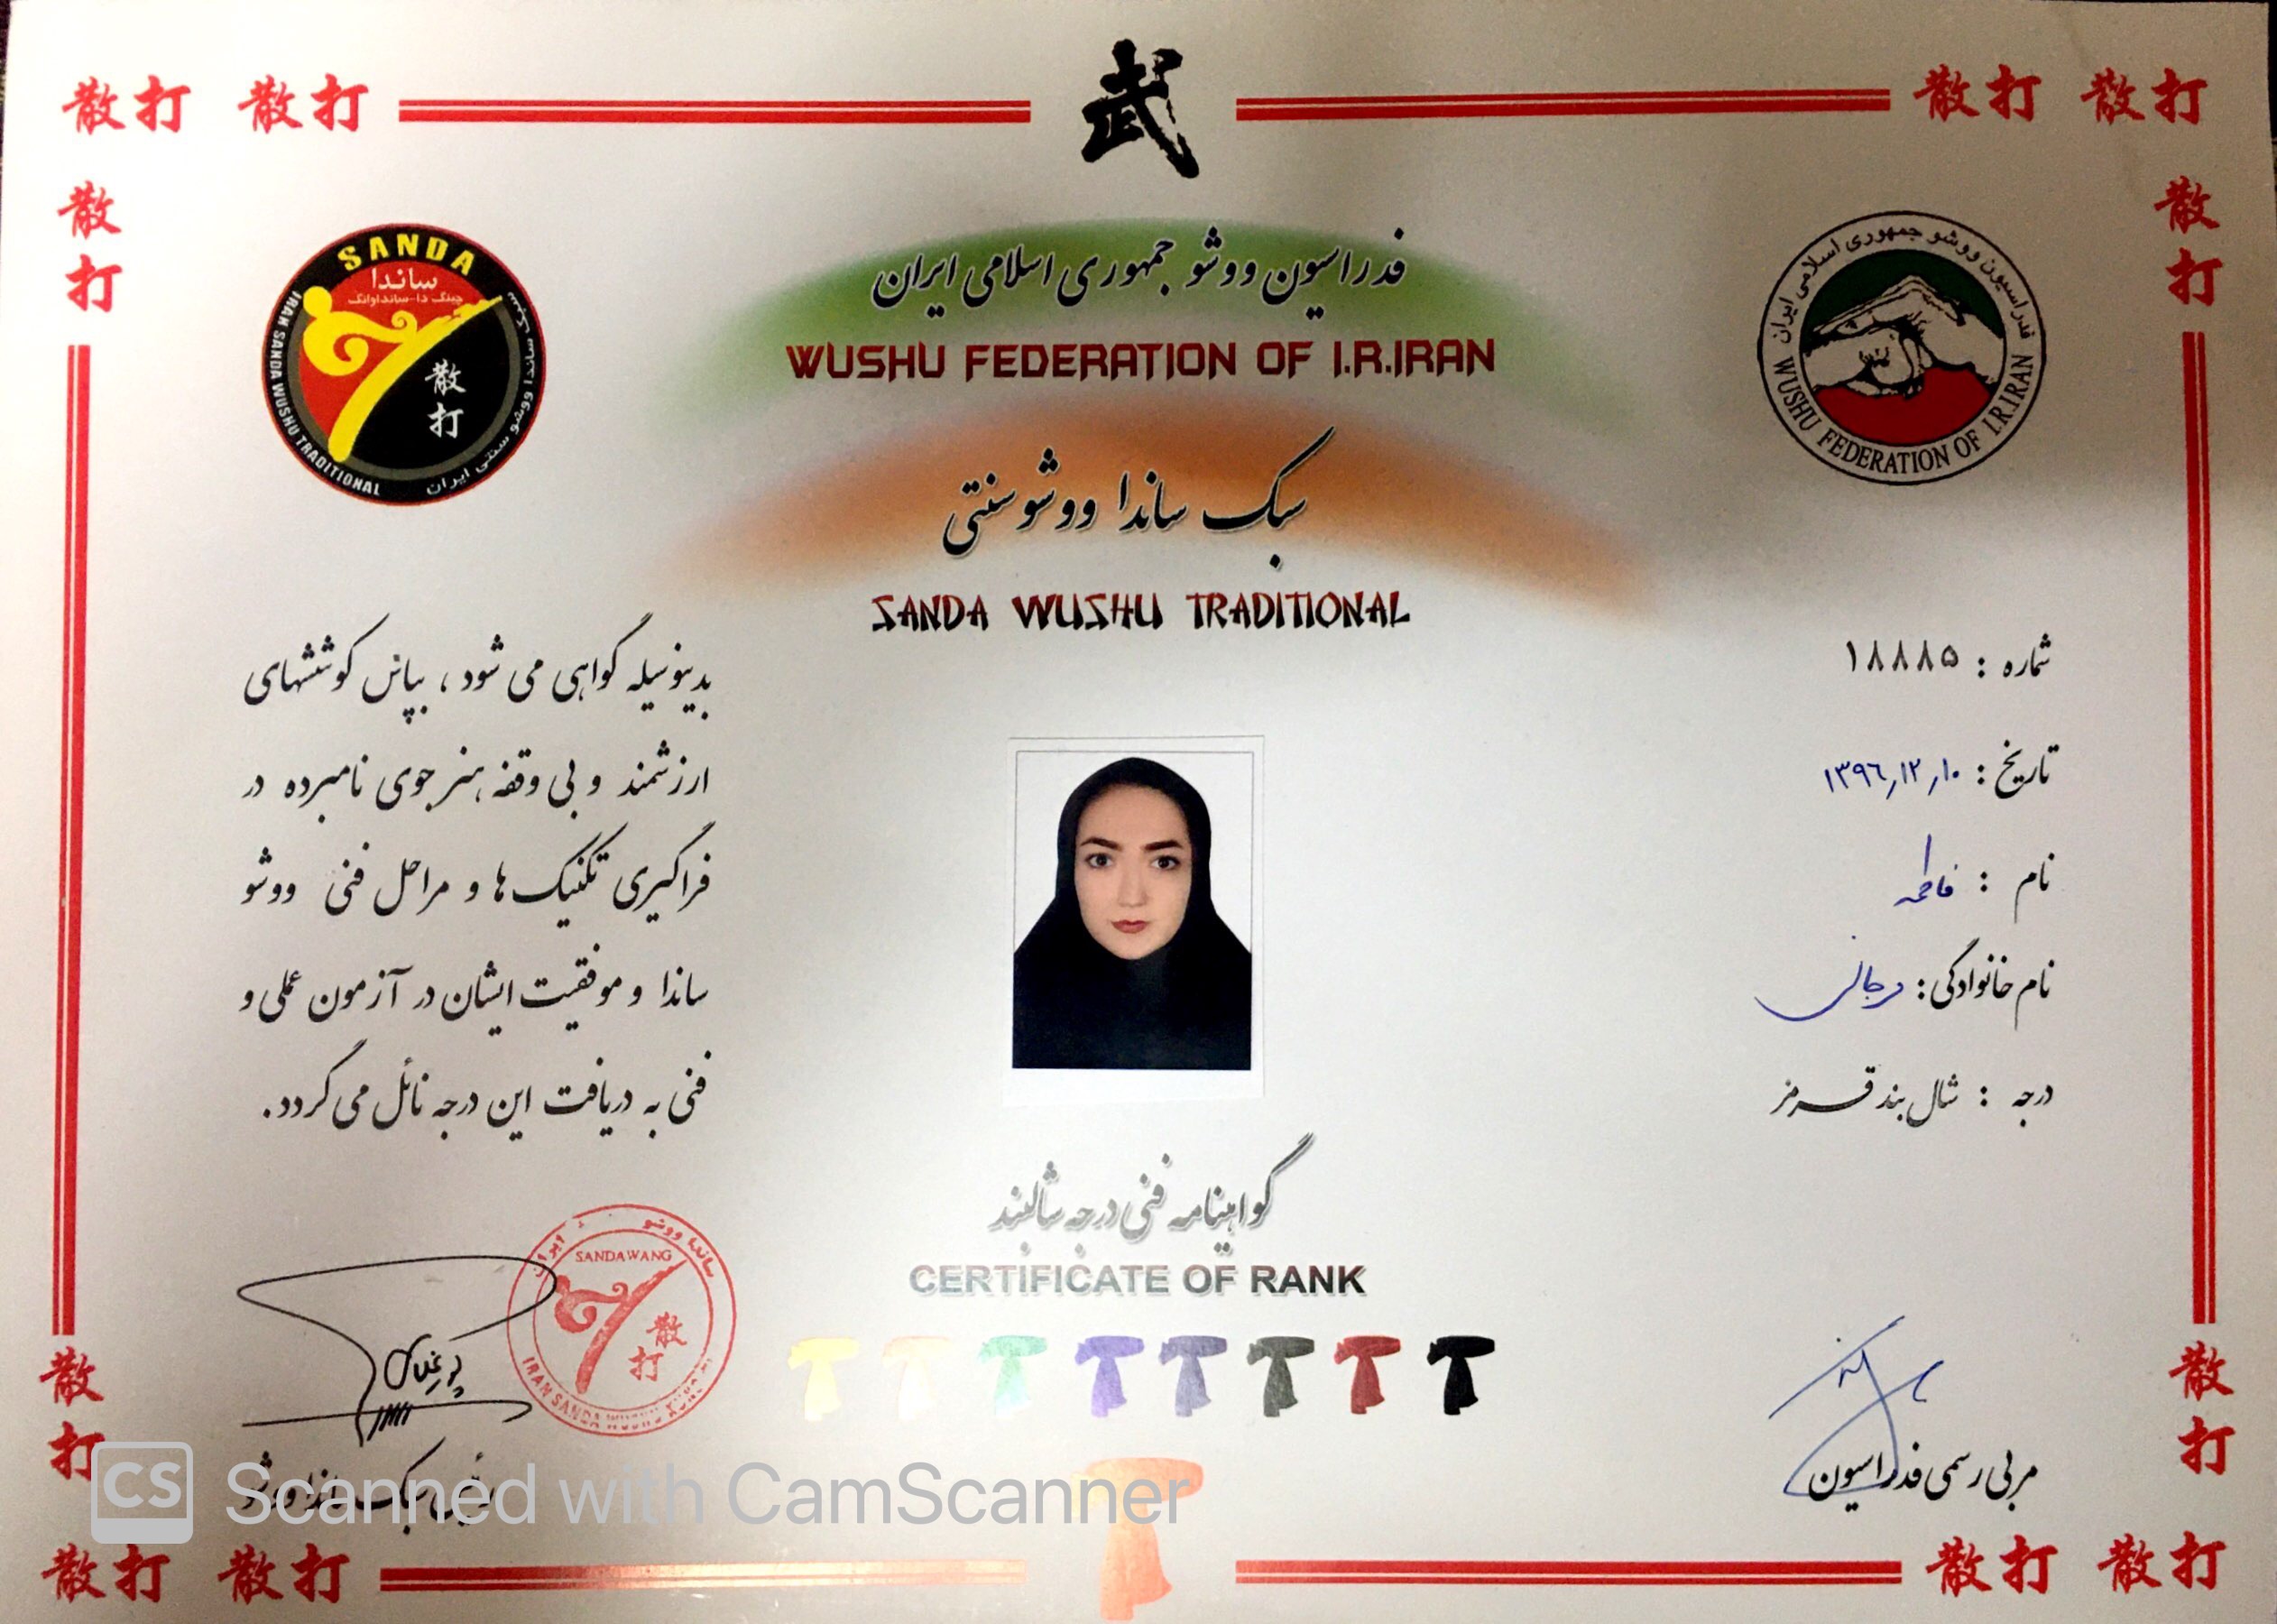 散打 散打 武 散打 散打
散打
散打
SANDA
ساندا
چینگ دا-سانداوانگ
散打
IRAN SANDA WUSHU TRADITIONAL
سبک ساندا ووشو سنتی ایران
فدراسیون ووشو جمهوری اسلامی ایران
WUSHU FEDERATION OF I.R.IRAN
فدراسیون ووشو جمهوری اسلامی ایران
WUSHU FEDERATION OF I.R.IRAN
سبک ساندا ووشو سنتی
SANDA WUSHU TRADITIONAL
شماره : ۱۸۸۸۵
تاریخ : ۱۳۹۶٫۱۲٫۱۰
نام : فاطمه
نام خانوادگی :
درجه : شال بند قرمز
بدینوسیله گواهی می شود ، بپاس کوششهای
ارزشمند و بی وقفه هنرجوی نامبرده در
فراگیری تکنیک ها و مراحل فنی ووشو
ساندا و موفقیت ایشان در آزمون عملی و
فنی به دریافت این درجه نائل می گردد.
گواهینامه فنی درجه شالبند
CERTIFICATE OF RANK
ساندا ووشو ایران
SANDAWANG
散打
IRAN SANDA WUSHU
رئیس سبک ساندا ووشو
مربی رسمی فدراسیون
散打
散打
散打 散打 散打 散打
CS Scanned with CamScanner